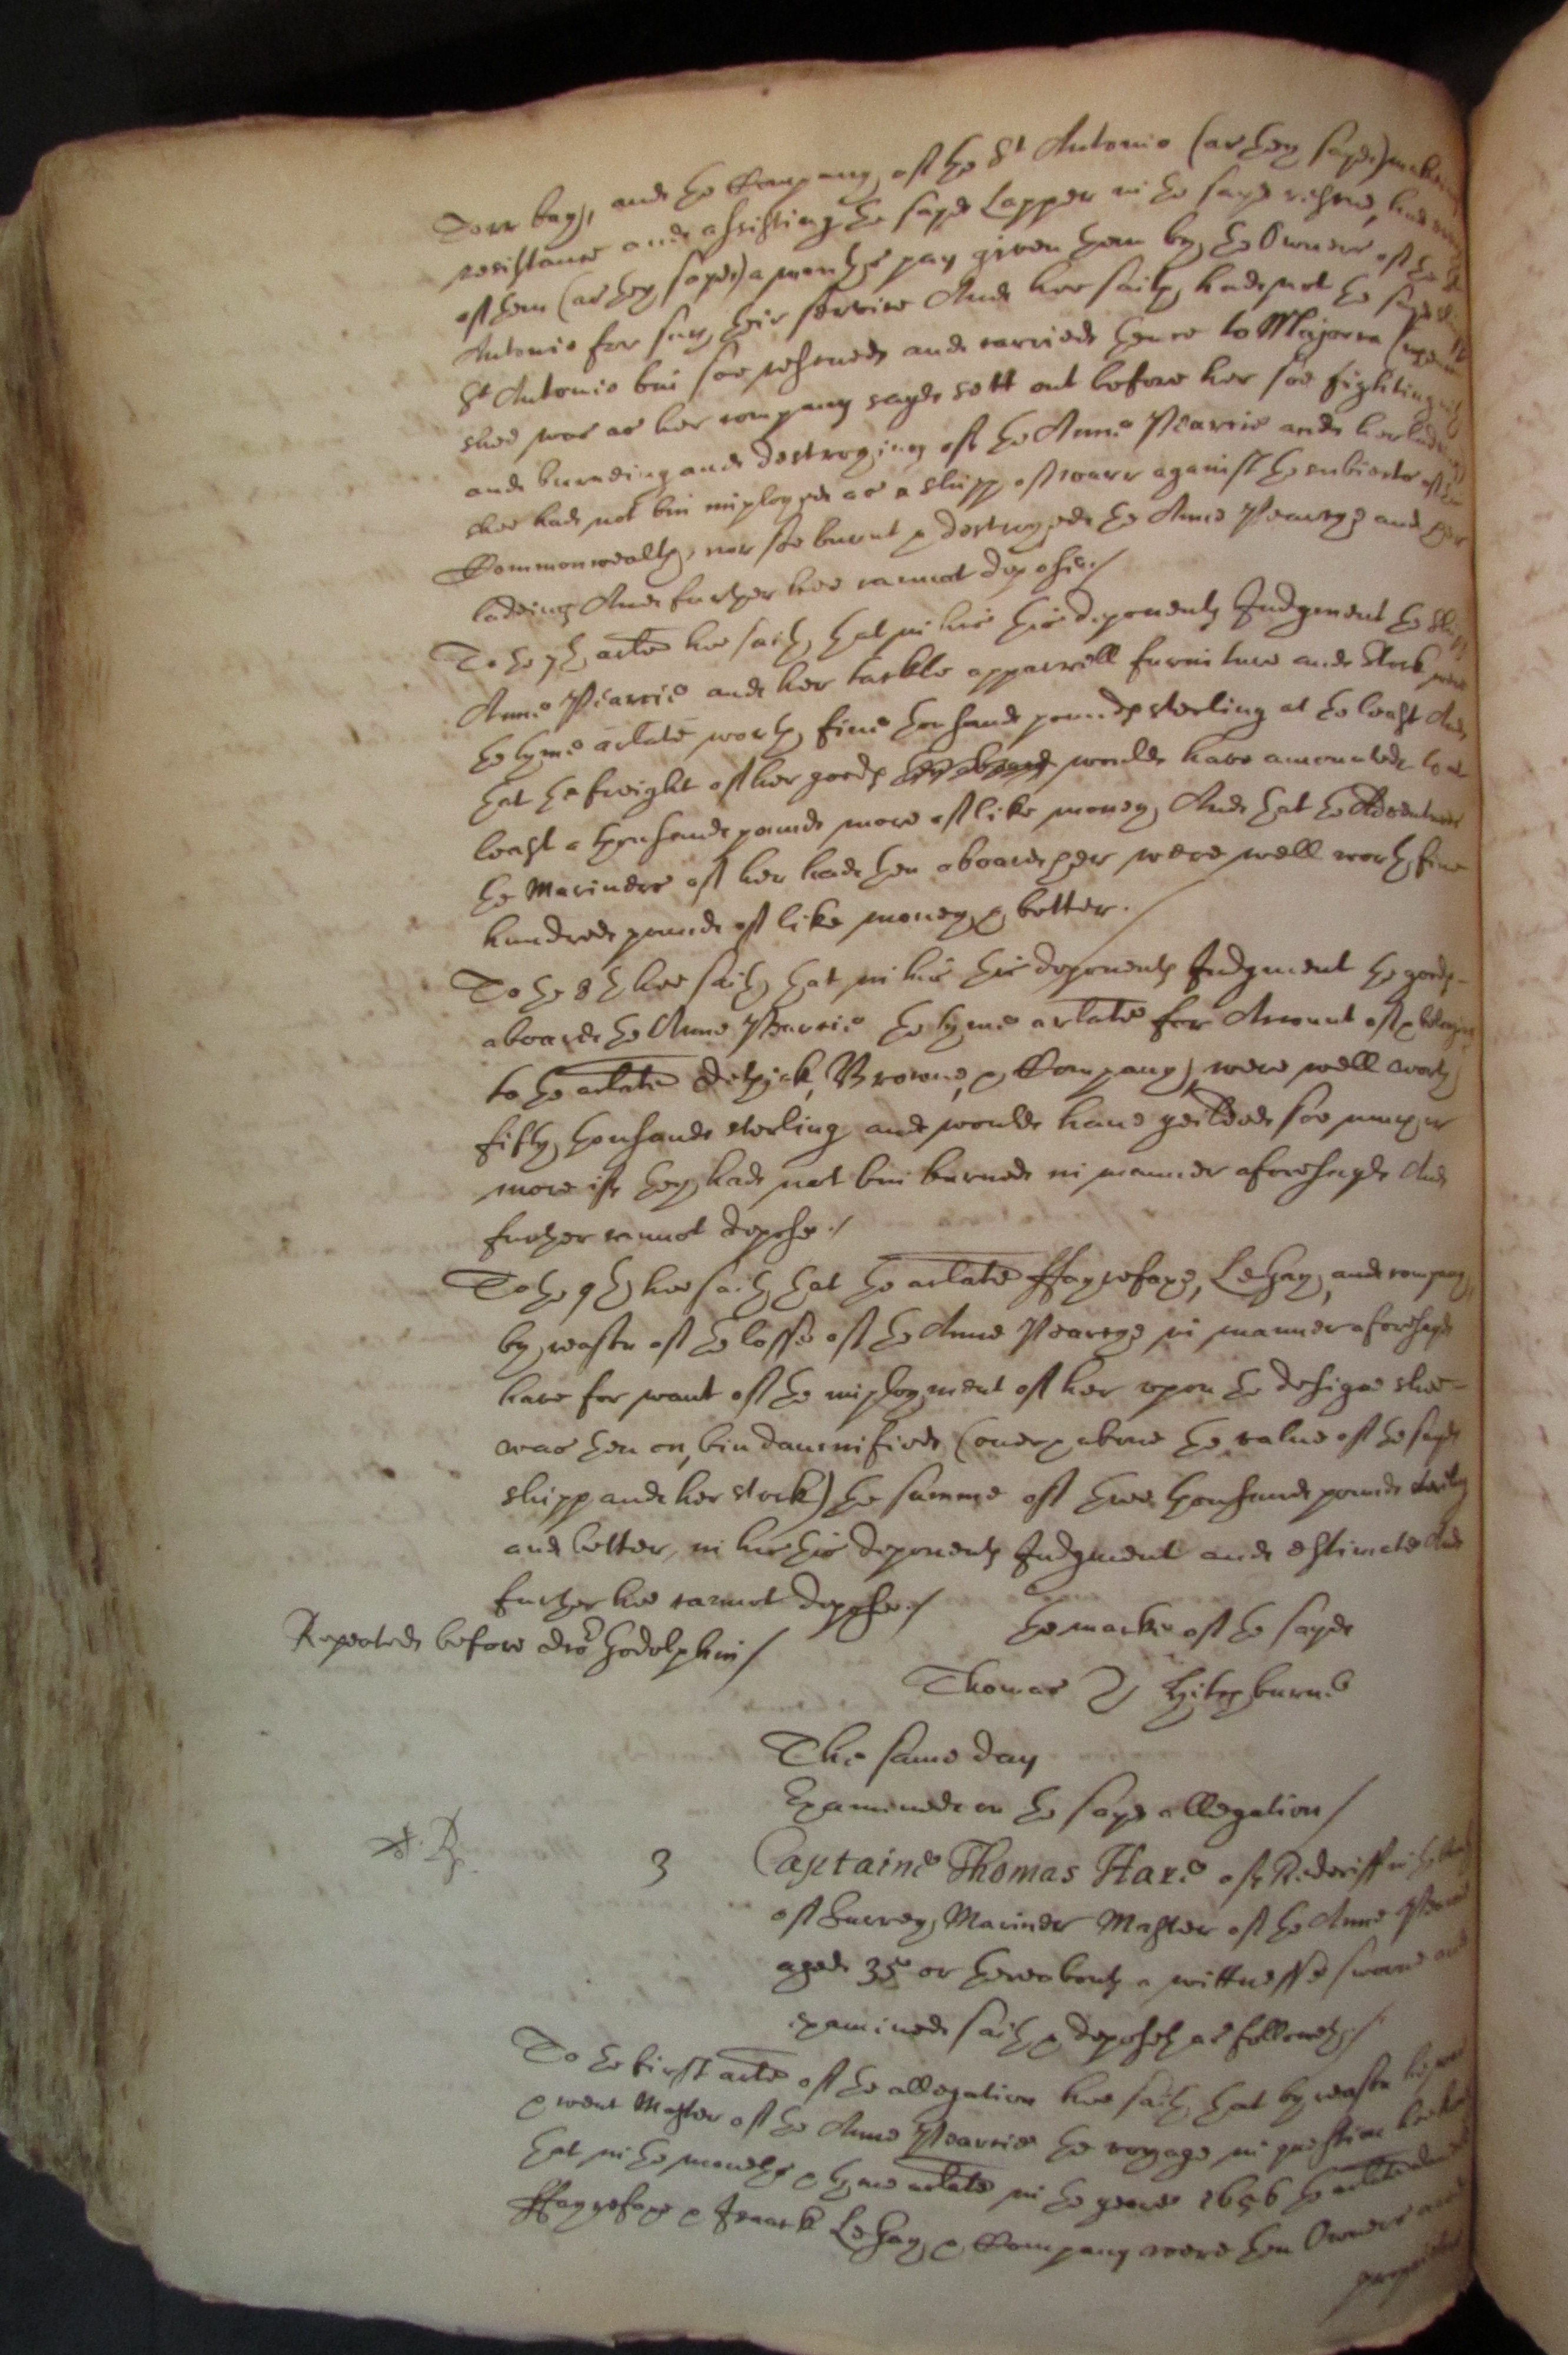 Torr bay, and the Company of the St Antonio (as they sayd) makeing
resistance and assisting the sayd Lapper in the sayd rescue, had
of them (as they sayd) a months pay given them by the Owners of the St
Antonio for such their service And hee saith, had not the sayd shipp
St Antonio bin soe rescued and carried thence to Majorca
shee was as her company sayd sett out before her soe fighting
and burneing and destroyeing of the Anne Pearcie and her ladeing
shee had not bin imployed as a shipp of warr against the subiects of this
Commonwealth, nor soe burnt & destroyed the Anne Pearcye and her
ladeing And further hee cannot depose./
To the 7th arlate hee saith, that in his this deponents Judgment the shipp
Anne Pearcie and her tackle apparrell furniture and stock were
the tyme arlate worth five thousand pounds sterling at the least And
that the freight of her goods would have amounted to at
least a thousand pounds more of like money, And that the Adventures
the Mariners of her had then aboard her were well worth five
hundred pounds of like money & better./
To the 8th hee saith, that in his this deponents Judgment the goods
aboard the Anne Pearcie the tyme arlate for Account of & belonging
to the arlate Brerewood, Browne, & Company, were well worth
fifty thousand sterling and would have yeilded soe much or
more if they had not bin burned in manner aforesayd And
further cannot depose./
To the 9th hee saith that the arlate Ffayrefaxe, LeHay, and company,
by reason of the losse of the Anne Pearcye in manner aforesayd
have for want of the imployment of her upon the designe shee
was then on, bin damnified (over & above the value of the sayd
shipp and her stock) the summe of three thousand pounds sterling
and better, in his this deponents Judgment and estimate And
further hee cannot depose./
Repeated before dr Godolphin/
The marke of the sayd
Thomas Hitchburne
The same day
Examined on the sayd allegation/
3 Captaine Thomas Hare of Rederiff in the County
of Surrey, Mariner Master of the Anne Pearcie
aged 35 or thereabouts a wittnesse sworne and
examined saith & deposeth as followeth./
To the first arlate of the allegation hee saith, that by reason hee was
& went Master of the Anne Pearcie the voyage in question hee
that in the moneths & tyme arlate in the yeare 1656 the arlate
Ffayrefaxe & Isaack LeHay & Company were then Owners and
proprietors